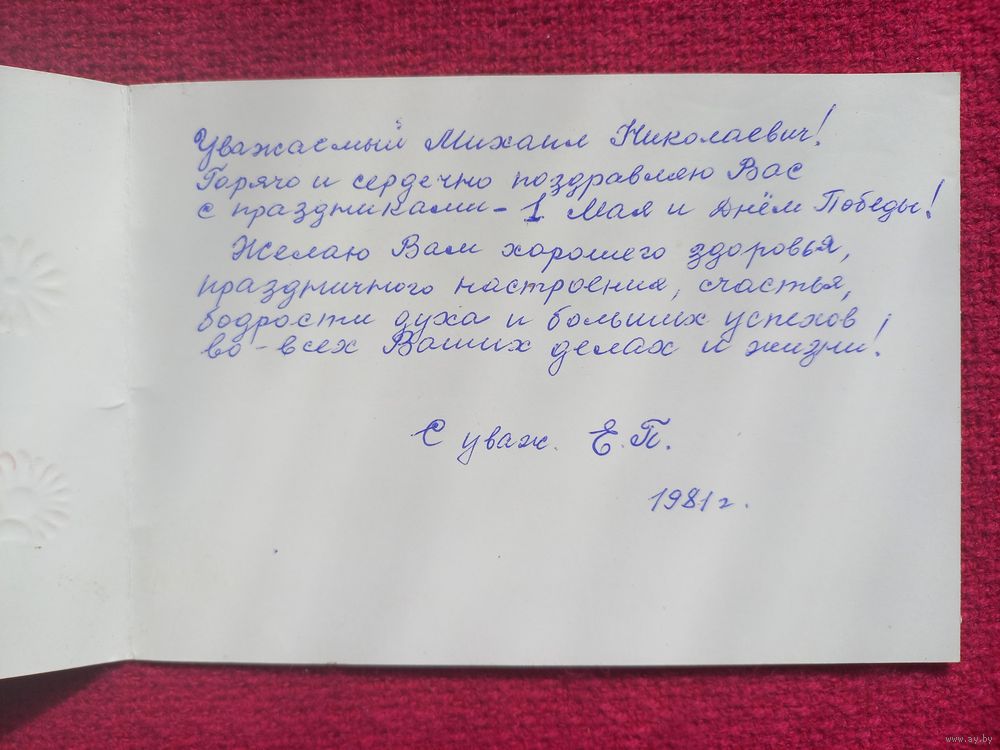 Уважаемый Михаил Николаевич!
Горячо и сердечно поздравляю Вас
с праздниками - 1 Мая и Днём Победы!
Желаю Вам хорошего здоровья,
праздничного настроения, счастья,
бодрости духа и больших успехов
во-всех Ваших делах и жизни!
С уваж. Е.П.
1981 г.
www.ay.by